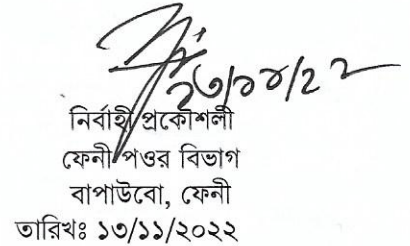 নির্বাহী প্রকৌশলী
ফেনী পওর বিভাগ
বাপাউবো, ফেনী
তারিখঃ ১৩/১১/২০২২